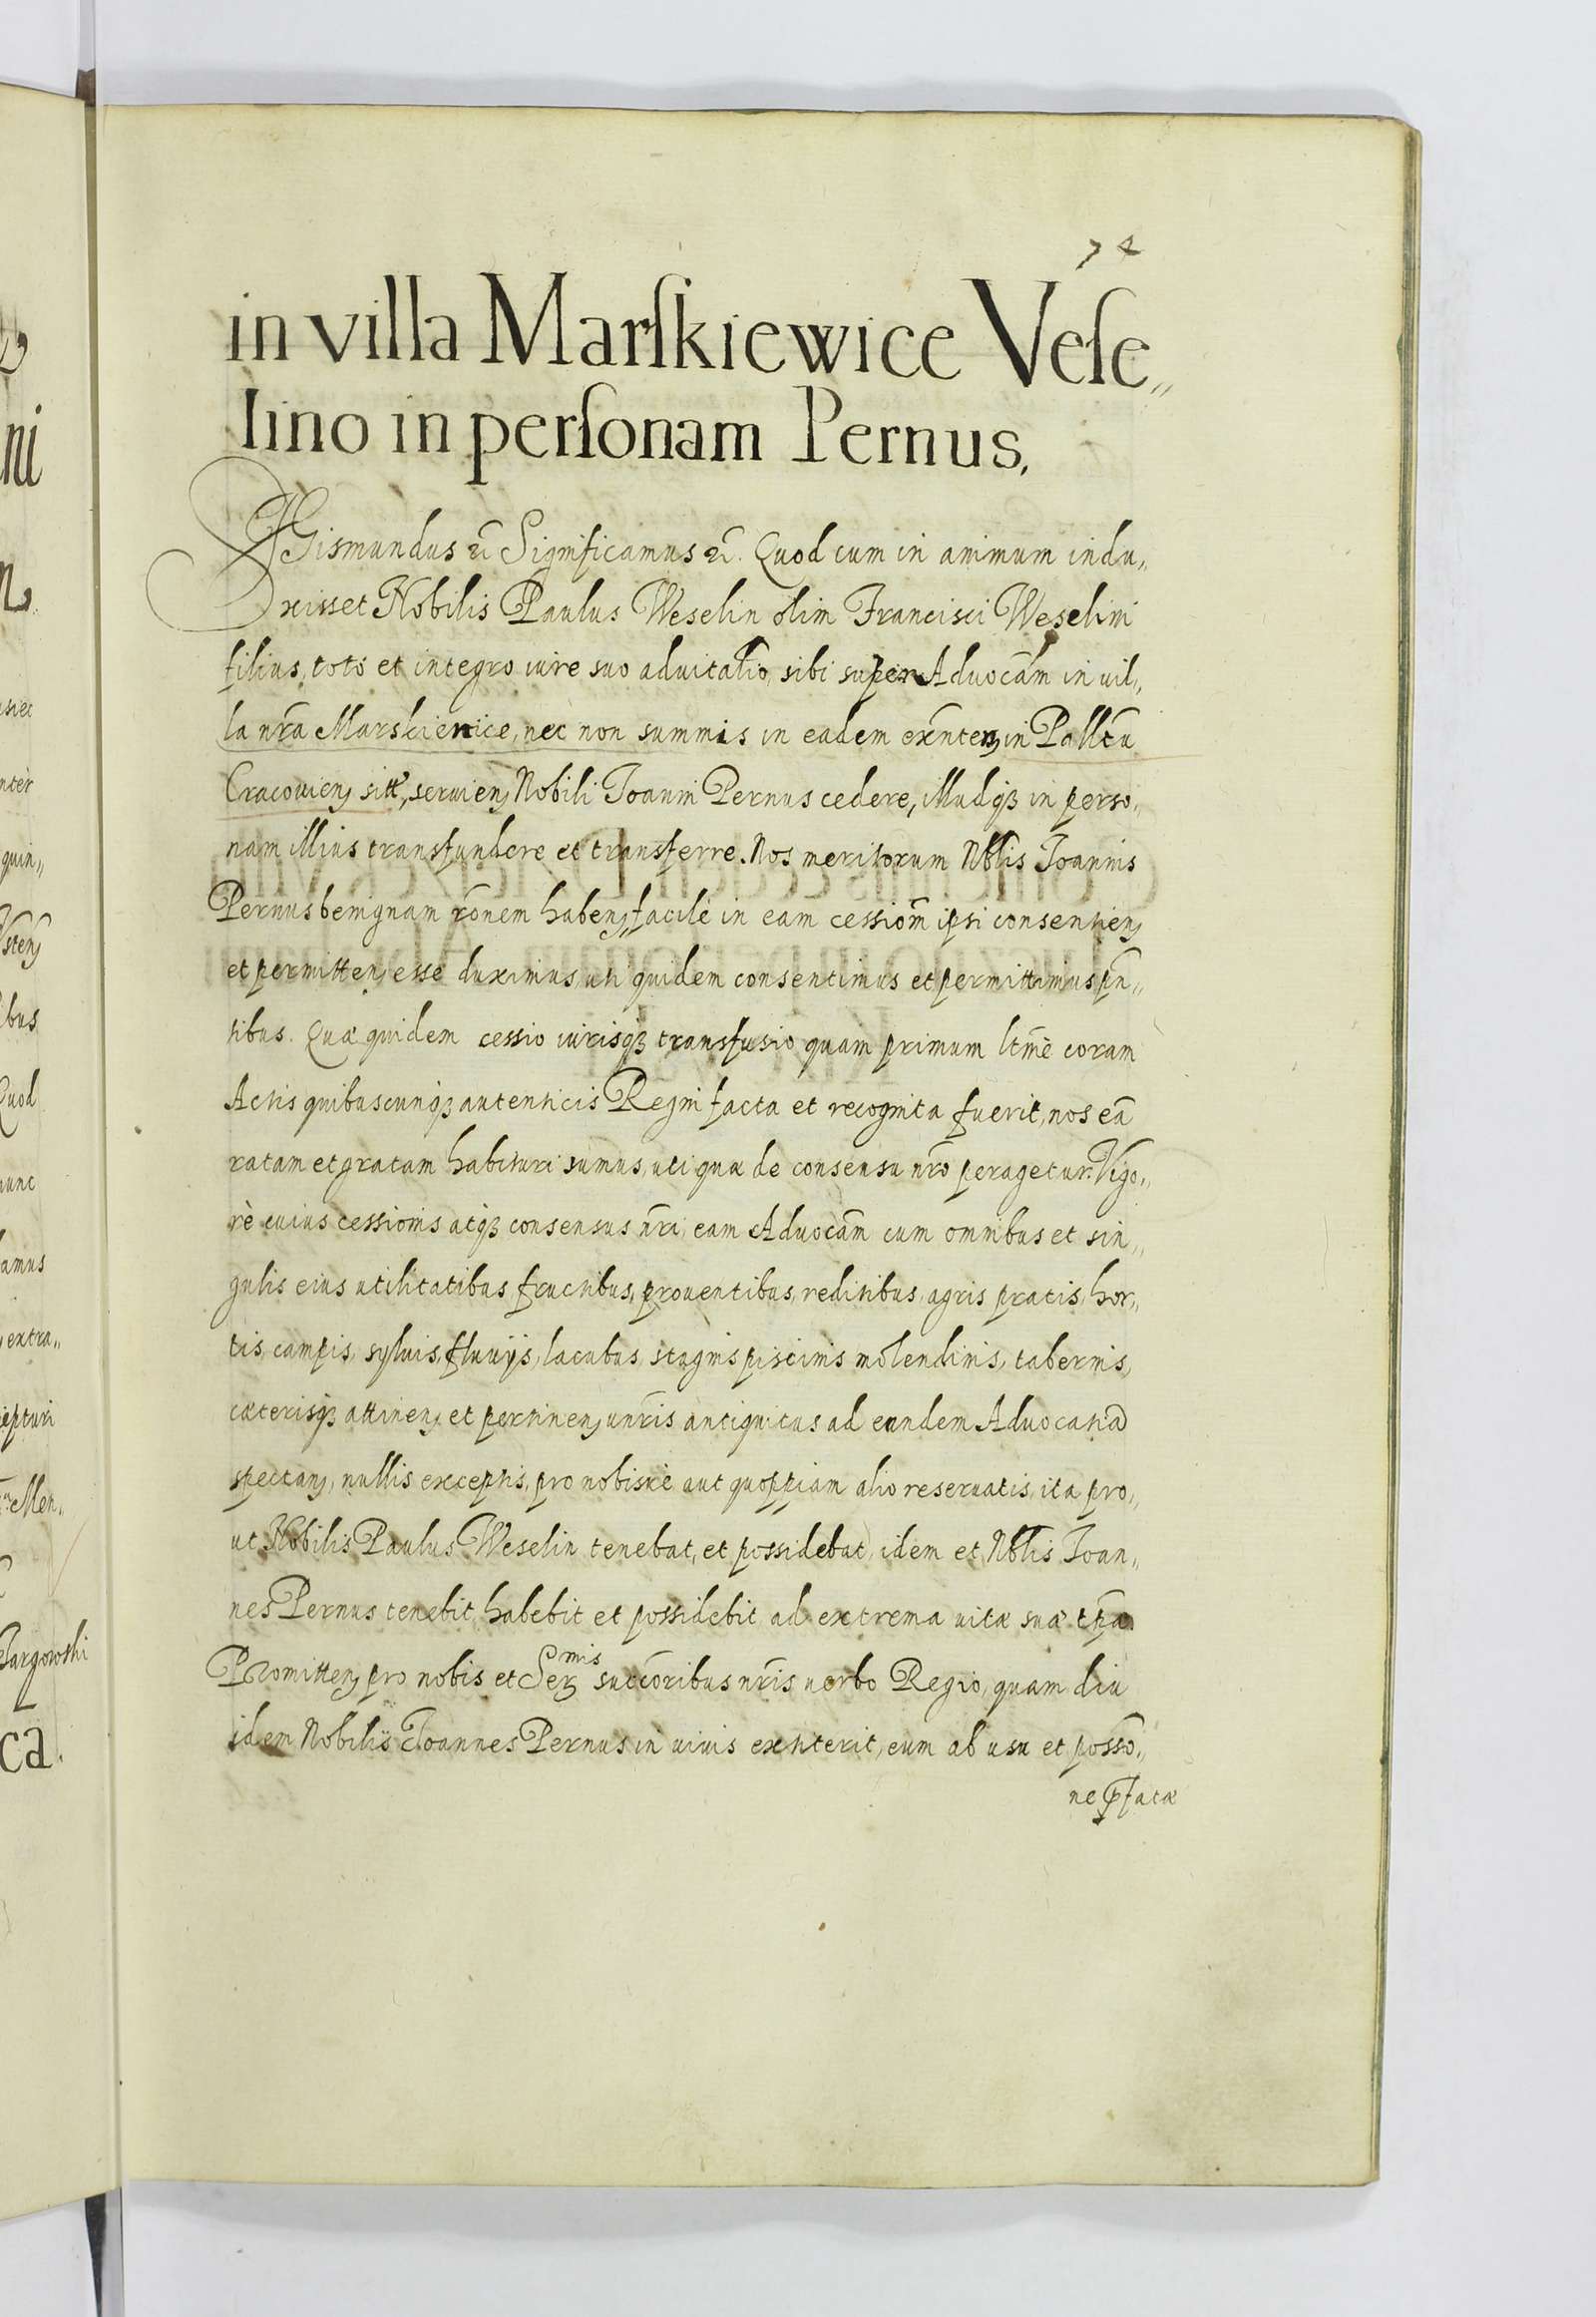 74
in villa Marskiewice Vese„
lino in personam Pernus.
SIGismundus etc̃ Significamus etc̃. Quod cum in animum indu„
xisset Nobilis Paulus Weselin olim Francisci Weselini
filius, toto et integro iure suo aduitalio, sibi super Aduocãm in uil„
la nr̃a Marskiewice, nec non summis in eadem exñteñ in Palltũ
Cracouieñ sitæ, seruieñ Nobili Joanni Pernus cedere, illudqȝ in perso„
nam illius transfundere et transferre. Nos meritorum Nblis Joannis
Pernus benignam rõnem habeñ, facilè in eam cessiom̃ ipsi consentieñ
et permitteñ esse duximus, uti quidem consentimus et permittimus pñ„
tibus. Quæ quidem cessio iurisqȝ transfusio quam primum ltm̃è coram
Actis quibuscunqȝ autenticis Regni facta et recognita fuerit, nos eã
ratam et gratam habituri sumus, uti quæ de consensu nr̃o peragetur. Vigo„
rè cuius cessionis atqȝ consensus nr̃i, eam Aduocãm cum omnibus et sin„
gulis eius utilitatibus fructibus, prouentibus, reditibus, agris pratis, hor„
tis, campis, syluis, fluuijs, lacubus, stagnis piscinis molendinis, tabernis,
cæterisqȝ attineñ et pertineñ unr̃is antiquitus ad eandem Aduocatiã
spectañ, nullis exceptis, pro nobisuè aut quoppiam alio reseruatis, ita pro„
ut Nobilis Paulus Weselin tenebat, et possidebat, idem et Nblis Joan„
nes Pernus tenebit, habebit et possidebit ad extrema uitæ suæ tp̃a.
Promitteñ pro nobis et Serꝫmis succoribus nr̃is uerbo Regio, quam diu
idem Nobilis Joannes Pernus in uiuis extiterit, eum ab usu et possõ„
ne p̃fatæ